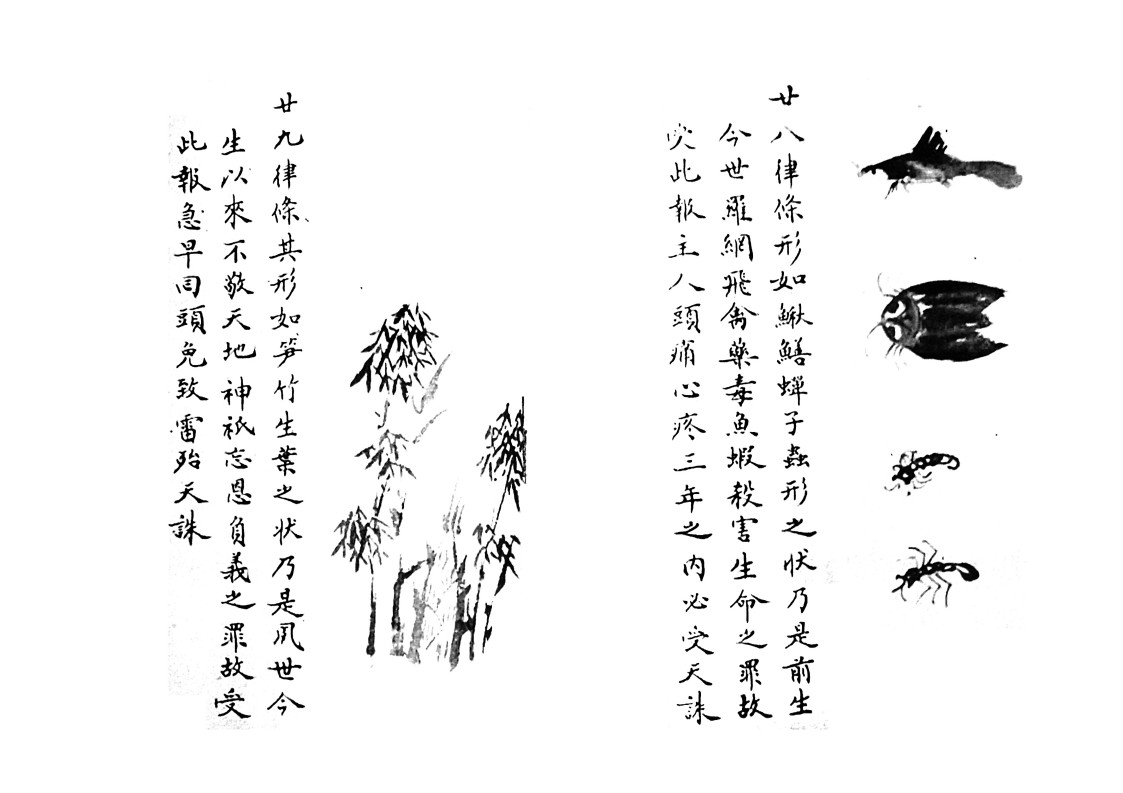 廿八律條形如鰍鱔蟬子蟲形之狀乃是前生
今世羅網飛禽藥毒魚蝦殺害生命之罪故
受此報主人頭痛心疼三年之內必受天誅
廿九律條其形如笋竹生葉之狀乃是夙世今
生以來不敬天地神祇忘恩負義之罪故受
此報急早回頭免致雷殆天誅